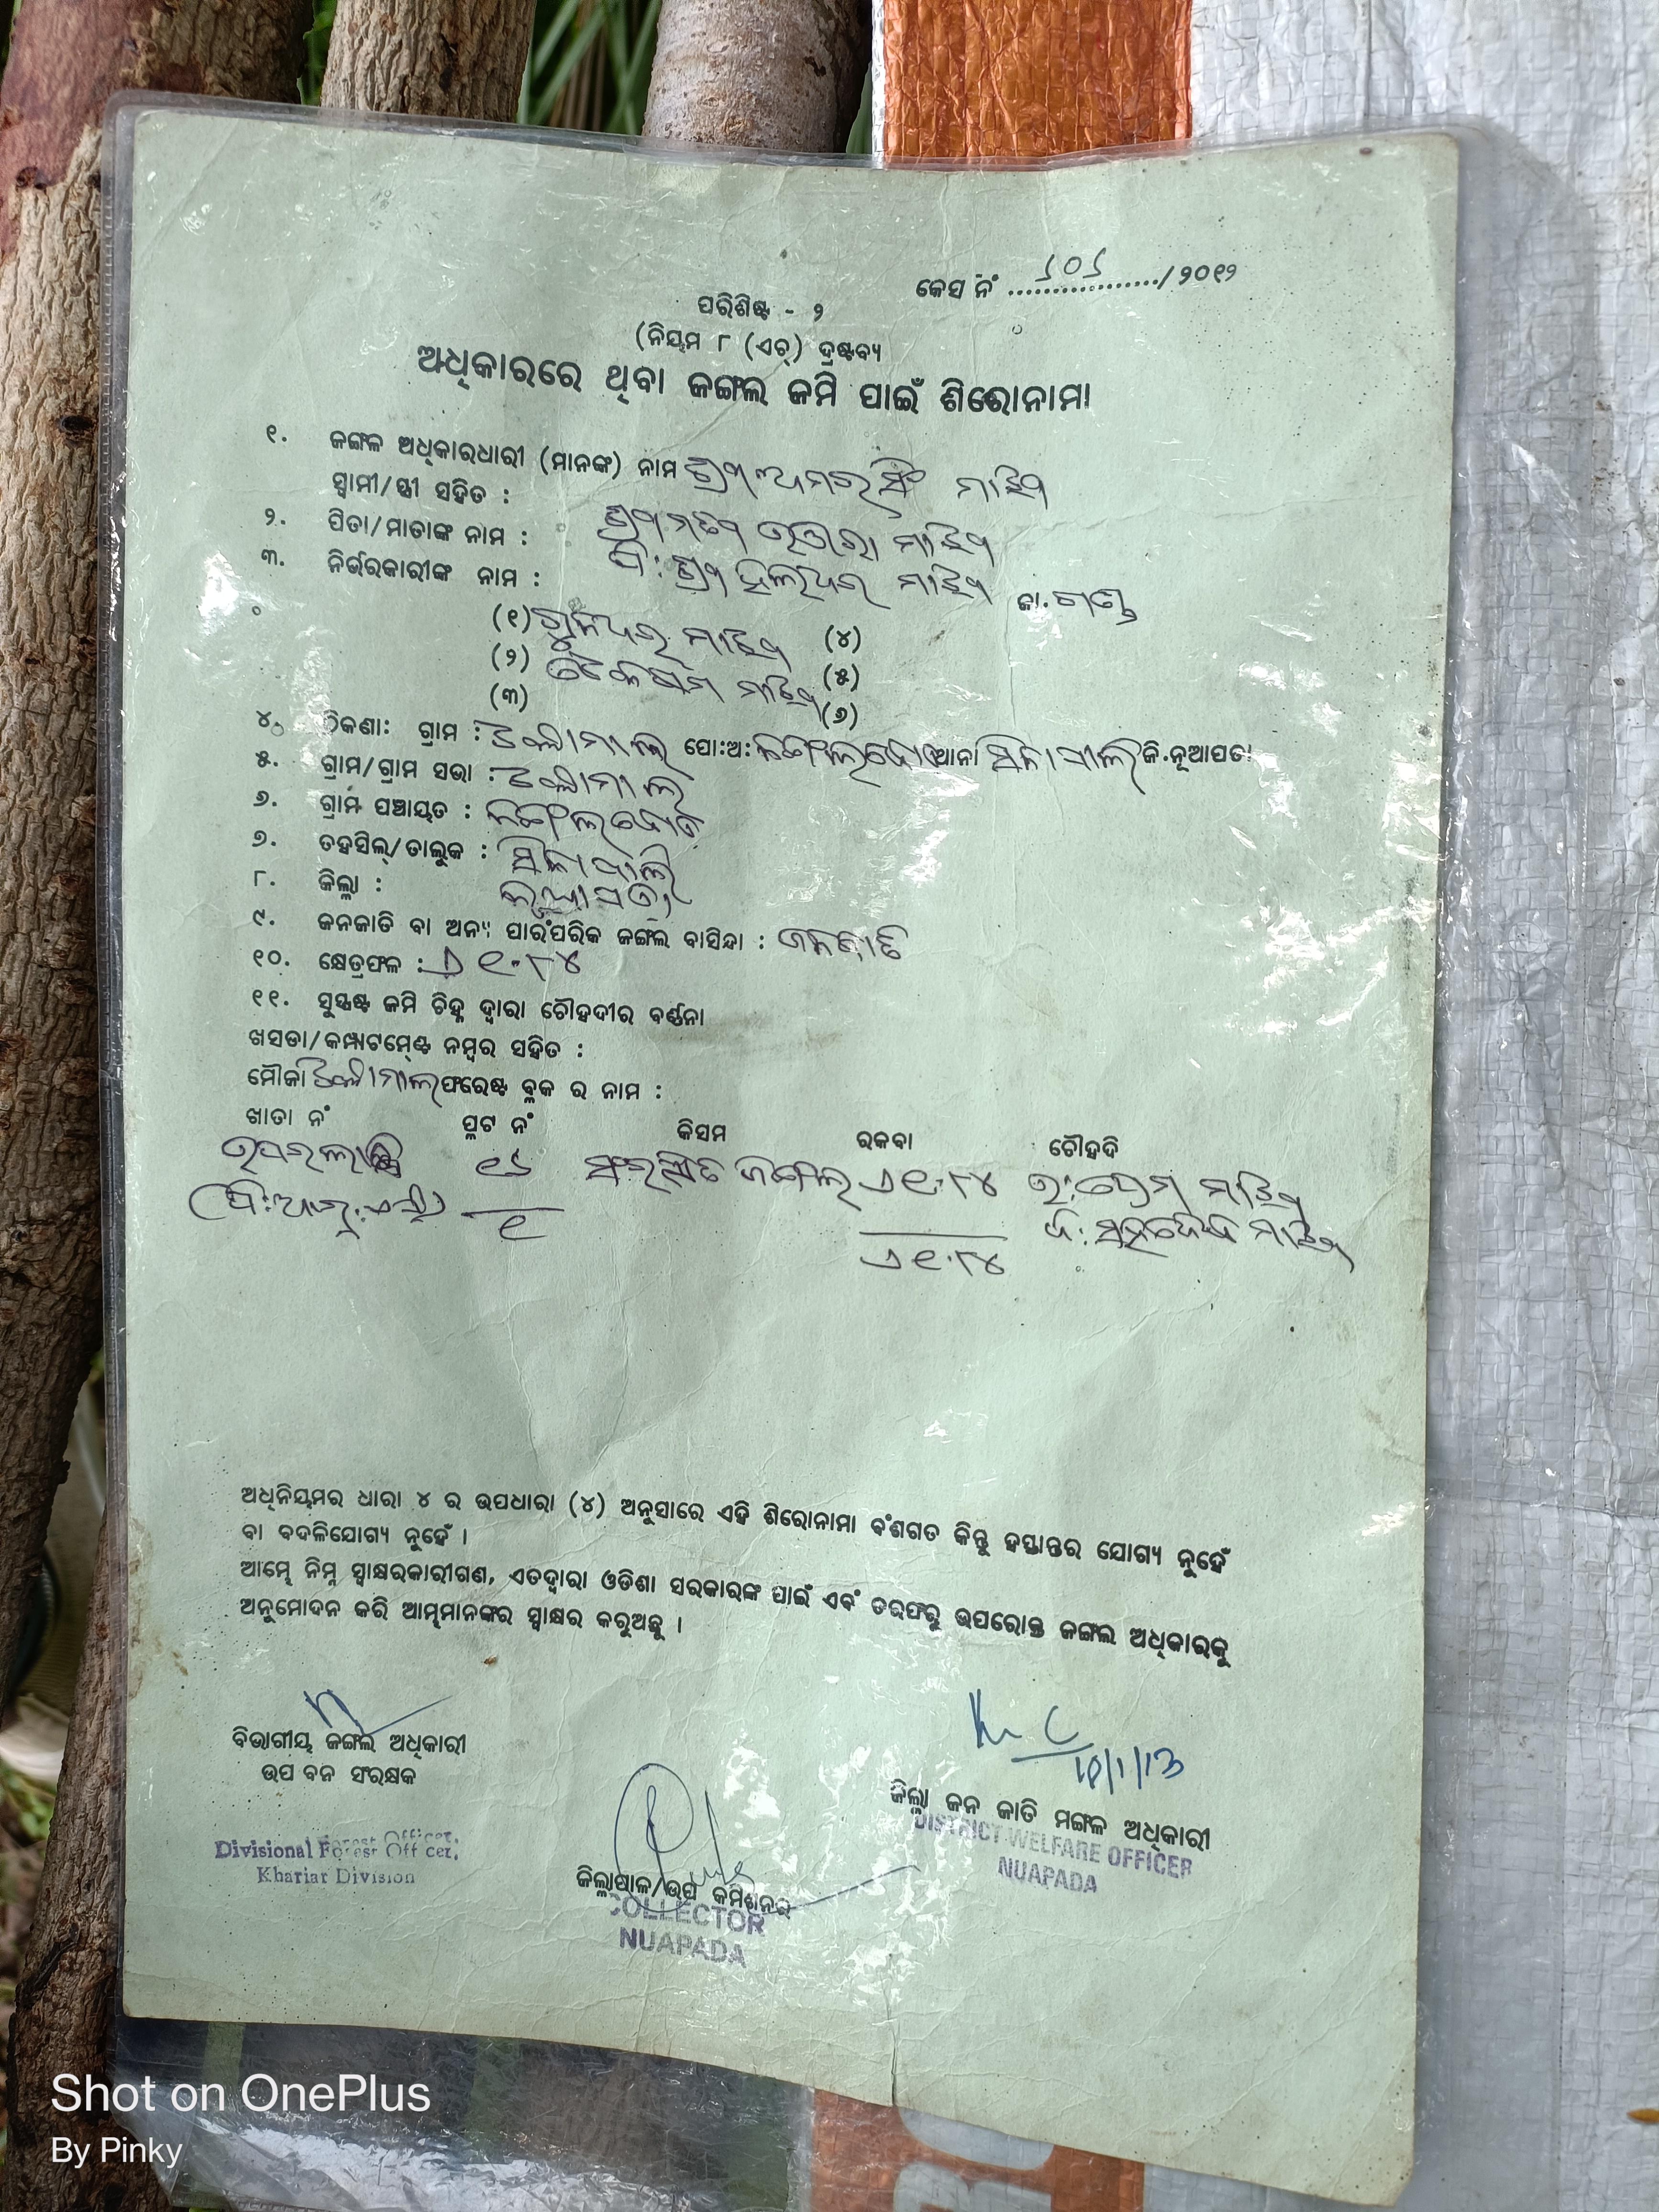 କେସ ନଂ ................/୨୦୧୨
ପରିଶିଷ୍ଟ - ୨
(ନିୟମ ୮ (ଏଚ୍) ଦ୍ରଷ୍ଟବ୍ୟ
ଅଧିକାରରେ ଥିବା ଜଙ୍ଗଲ ଜମି ପାଇଁ ଶିରୋନାମା
୧. ଜଙ୍ଗଳ ଅଧିକାରଧାରୀ (ମାନଙ୍କ) ନାମ ଶ୍ରୀ ଅମରସିଂ ମାଝୀ
ସ୍ୱାମୀ/ସ୍ତ୍ରୀ ସହିତ : ଶ୍ରୀମତୀ ମାଝୀ
୨. ପିତା/ମାତାଙ୍କ ନାମ : ପି: ଶ୍ରୀ ମାଝୀ ଜା. ଗଣ୍ଡ
୩. ନିର୍ଭରକାରୀଙ୍କ ନାମ :
(୧) ମାଝୀ (୪)
(୨) ମାଝୀ (୫)
(୩) (୬)
୪. ଠିକଣା: ଗ୍ରାମ : ପୋ:ଅ: ଥାନା ସିନାପାଲି ଜି.ନୂଆପଡା
୫. ଗ୍ରାମ/ଗ୍ରାମ ସଭା :
୬. ଗ୍ରାମ ପଞ୍ଚାୟତ :
୭. ତହସିଲ୍/ତାଲୁକ : ସିନାପାଲି
୮. ଜିଲ୍ଲା : ନୂଆପଡା
୯. ଜନଜାତି ବା ଅନ୍ୟ ପାରଂପରିକ ଜଙ୍ଗଲ ବାସିନ୍ଦା : ଜନଜାତି
୧୦. କ୍ଷେତ୍ରଫଳ : ଏ ୧.୮୪
୧୧. ସୁସ୍ପଷ୍ଟ ଜମି ଚିହ୍ନ ଦ୍ୱାରା ଚୌହଦୀର ବର୍ଣ୍ଣନା
ଖସଡା/କମ୍ପାଟମେଣ୍ଟ ନମ୍ବର ସହିତ :
ମୌଜା ଫରେଷ୍ଟ ବ୍ଲକ ର ନାମ :
ଖାତା ନଂ ପ୍ଲଟ ନଂ କିସମ ରକବା ଚୌହଦି
ସଂରକ୍ଷିତ ଜଙ୍ଗଲ ଏ ୧.୮୪ ଉ: ପ୍ରେମ ମାଝୀ
(ପି.ଆର୍.ଏସ୍) ୧ ଦ: ସହଦେବ ମାଝୀ
ଏ ୧.୮୪
ଅଧିନିୟମର ଧାରା ୪ ର ଉପଧାରା (୪) ଅନୁସାରେ ଏହି ଶିରୋନାମା ବଂଶଗତ କିନ୍ତୁ ହସ୍ତାନ୍ତର ଯୋଗ୍ୟ ନୁହେଁ
ବା ବଦଳିଯୋଗ୍ୟ ନୁହେଁ ।
ଆମ୍ଭେ ନିମ୍ନ ସ୍ୱାକ୍ଷରକାରୀଗଣ, ଏତଦ୍ୱାରା ଓଡିଶା ସରକାରଙ୍କ ପାଇଁ ଏବଂ ତରଫରୁ ଉପରୋକ୍ତ ଜଙ୍ଗଲ ଅଧିକାରକୁ
ଅନୁମୋଦନ କରି ଆମ୍ଭମାନଙ୍କର ସ୍ୱାକ୍ଷର କରୁଅଛୁ ।
10/1/13
ବିଭାଗୀୟ ଜଙ୍ଗଲ ଅଧିକାରୀ
ଉପ ବନ ସଂରକ୍ଷକ
Divisional Forest Officer,
Khariar Division
ଜିଲ୍ଲାପାଳ/ଉପ କମିଶନର
COLLECTOR
NUAPADA
ଜିଲ୍ଲା ଜନ ଜାତି ମଙ୍ଗଳ ଅଧିକାରୀ
DISTRICT WELFARE OFFICER
NUAPADA
Shot on OnePlus
By Pinky